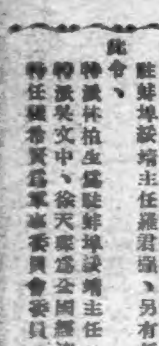 駐蚌埠綏靖主任羅君彊、另有任
此令、
特派林柏生爲駐蚌埠綏靖主任
特派吳文中、徐天深爲全國經濟
特任楊希賢爲軍事委員會委員